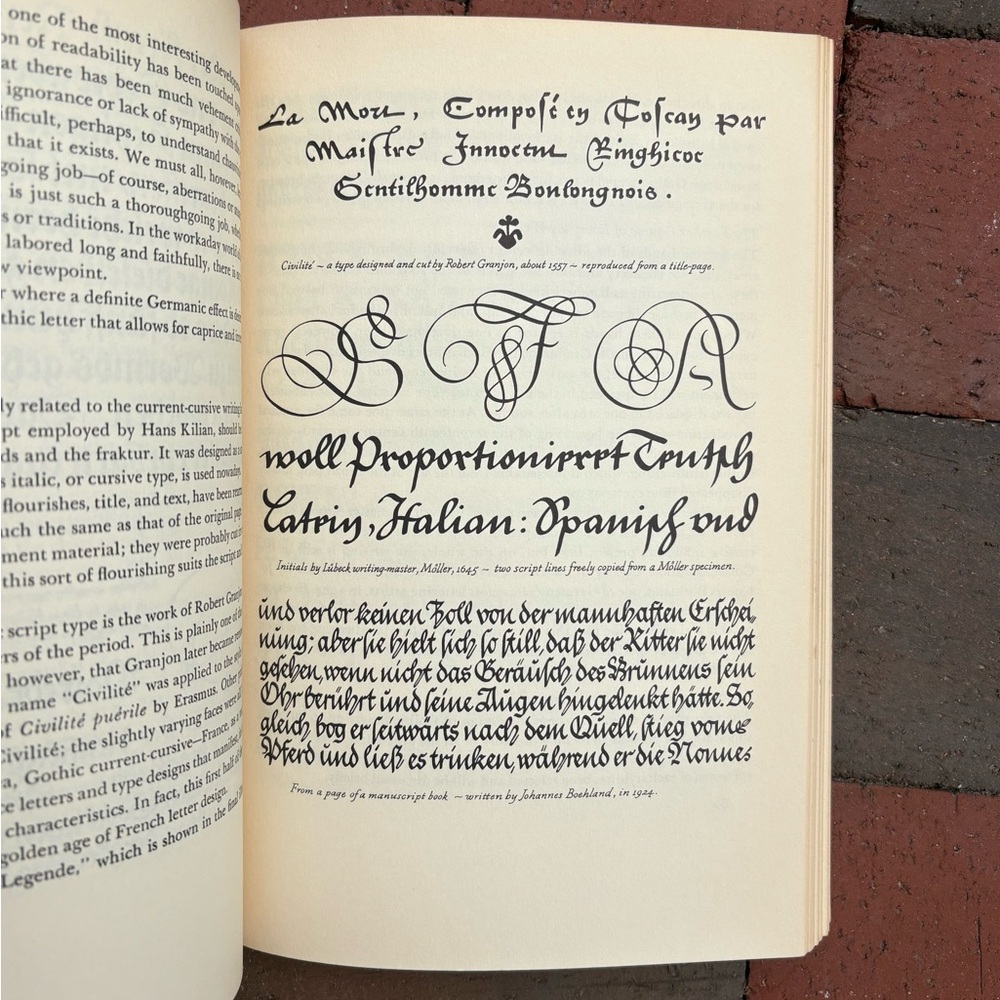 one of the most interesting
on of readability has been touched
at there has been much vehement
ignorance or lack of sympathy with
ifficult, perhaps, to understand
that it exists. We must all, however,
going job—of course, aberrations or
is just such a thoroughgoing job,
s or traditions. In the workaday world
labored long and faithfully, there is
w viewpoint.
r where a definite Germanic effect is
thic letter that allows for caprice and
ly related to the current-cursive writing
pt employed by Hans Kilian, should
ds and the fraktur. It was designed as
s italic, or cursive type, is used nowadays.
flourishes, title, and text, have been
uch the same as that of the original
ment material; they were probably cut
this sort of flourishing suits the script and
script type is the work of Robert
rs of the period. This is plainly one of
however, that Granjon later became
name “Civilité” was applied to the
of Civilité puérile by Erasmus. Other
Civilité; the slightly varying faces were
a, Gothic current-cursive—France,
ce letters and type designs that
characteristics. In fact, this first half of
golden age of French letter design.
Legende,” which is shown in the final
La Mort, Composé en Toscan par
Maistre Innocent Ringhicoc
Gentilhomme Boulongnois.
Civilité ~ a type designed and cut by Robert Granjon, about 1557 ~ reproduced from a title-page.
S T A
woll Proportionieret Teutsch
Latein, Italian: Spanisch vnd
Initials by Lübeck writing-master, Möller, 1645 ~ two script lines freely copied from a Möller specimen.
und verlor keinen Zoll von der mannhaften Erschei-
nung; aber sie hielt sich so still, daß der Ritter sie nicht
gesehen, wenn nicht das Geräusch des Brunnens sein
Ohr berührt und seine Augen hingelenkt hätte. So-
gleich bog er seitwärts nach dem Quell, stieg vom
Pferd und ließ es trinken, während er die Nonne
From a page of a manuscript book ~ written by Johannes Boehland, in 1924.